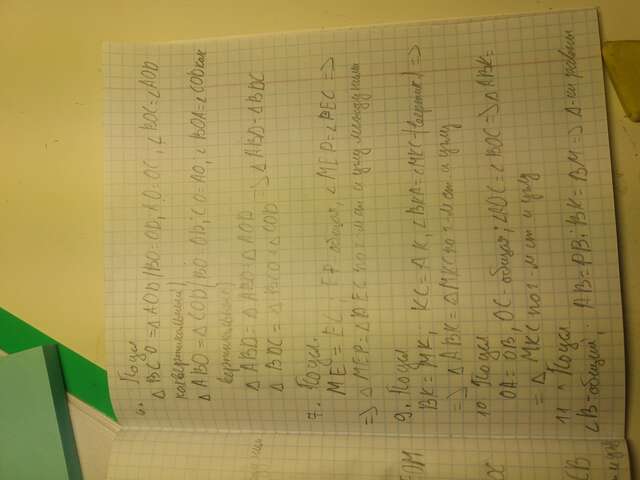 6. По усл
△ BCO = △ AOD / BO=OD, AO=OC, ∠BOC=∠AOD
как вертикальные)
△ ABO = △ COD / BO=OD; CO=AO; ∠BOA=∠COD как
вертикальные)
△ ABD = △ ABO + △ AOD
△ BDC = △ BCO + △ COD => △ABD=△BDC
7. По усл.
ME = EC, EP общая, ∠MEP=∠PEC =>
=> △ MEP=△PEC по 2-м ст. и углу между ними
9. По усл
BK = MK, KC = AK, ∠BKA=∠MKC-(вертик.) =>
=> △ ABK = △MKC по 2-м ст и углу
10. По усл
OA = OB, OC-общая; ∠AOC=∠BOC => △ABK=
= △ MKC по 2-м ст и углу
11. По усл
∠B-общий, AB=PB; BK=BM => △-ки равны
ОМ
ОС
СВ